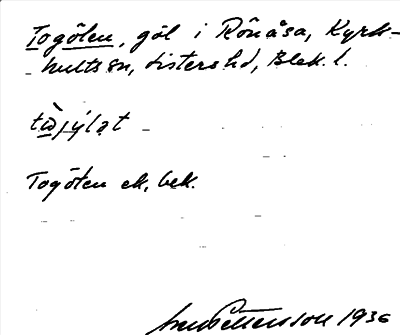 Togölen, göl i Rönåsa, Kyrk-
hults sn, Listers hd, Blek. l.
tò̱jýlət
Togölen ek, bek.
Pettersson 1936